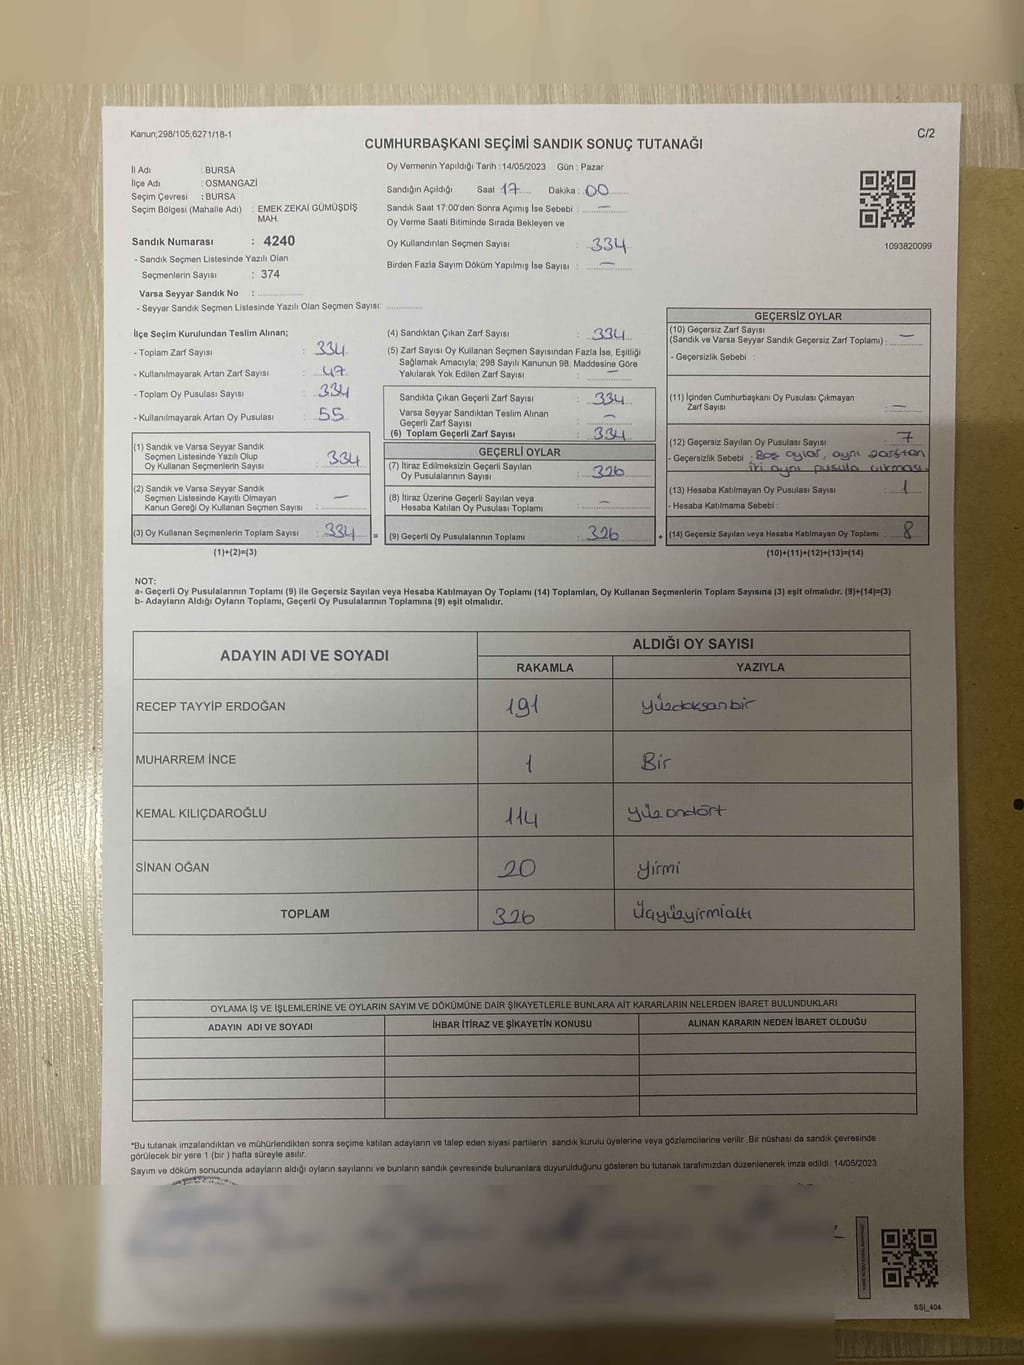 Kanun;298/105,6271/18-1
C/2
CUMHURBAŞKANI SEÇİMİ SANDIK SONUÇ TUTANAĞI
İl Adı : BURSA
İlçe Adı : OSMANGAZİ
Seçim Çevresi : BURSA
Seçim Bölgesi (Mahalle Adı) : EMEK ZEKAİ GÜMÜŞDİŞ
MAH.
Sandık Numarası : 4240
- Sandık Seçmen Listesinde Yazılı Olan
Seçmenlerin Sayısı : 374
Varsa Seyyar Sandık No : ................
- Seyyar Sandık Seçmen Listesinde Yazılı Olan Seçmen Sayısı: .............
Oy Vermenin Yapıldığı Tarih :14/05/2023 Gün : Pazar
Sandığın Açıldığı Saat : 17 Dakika : 00
Sandık Saat 17:00'den Sonra Açımış İse Sebebi : —
Oy Verme Saati Bitiminde Sırada Bekleyen ve
Oy Kullandırılan Seçmen Sayısı : 334
Birden Fazla Sayım Döküm Yapılmış İse Sayısı : —
1093820099
İlçe Seçim Kurulundan Teslim Alınan;
- Toplam Zarf Sayısı : 334
- Kullanılmayarak Artan Zarf Sayısı : 47
- Toplam Oy Pusulası Sayısı : 334
- Kullanılmayarak Artan Oy Pusulası : 55
(1) Sandık ve Varsa Seyyar Sandık
Seçmen Listesinde Yazılı Olup
Oy Kullanan Seçmenlerin Sayısı : 334
(2) Sandık ve Varsa Seyyar Sandık
Seçmen Listesinde Kayıtlı Olmayan
Kanun Gereği Oy Kullanan Seçmen Sayısı : —
(3) Oy Kullanan Seçmenlerin Toplam Sayısı : 334 =
(1)+(2)=(3)
(4) Sandıktan Çıkan Zarf Sayısı : 334
(5) Zarf Sayısı Oy Kullanan Seçmen Sayısından Fazla İse, Eşitliği
Sağlamak Amacıyla; 298 Sayılı Kanunun 98. Maddesine Göre
Yakılarak Yok Edilen Zarf Sayısı : —
Sandıkta Çıkan Geçerli Zarf Sayısı : 334
Varsa Seyyar Sandıktan Teslim Alınan
Geçerli Zarf Sayısı : —
(6) Toplam Geçerli Zarf Sayısı : 334
GEÇERLİ OYLAR
(7) İtiraz Edilmeksizin Geçerli Sayılan
Oy Pusulalarının Sayısı : 326
(8) İtiraz Üzerine Geçerli Sayılan veya
Hesaba Katılan Oy Pusulası Toplamı : —
(9) Geçerli Oy Pusulalarının Toplamı : 326 +
GEÇERSİZ OYLAR
(10) Geçersiz Zarf Sayısı
(Sandık ve Varsa Seyyar Sandık Geçersiz Zarf Toplamı) : —
- Geçersizlik Sebebi :
(11) İçinden Cumhurbaşkanı Oy Pusulası Çıkmayan
Zarf Sayısı : —
(12) Geçersiz Sayılan Oy Pusulası Sayısı : 7
- Geçersizlik Sebebi : Boş oylar, aynı zarftan
iki aynı pusula çıkması.
(13) Hesaba Katılmayan Oy Pusulası Sayısı : 1
- Hesaba Katılmama Sebebi :
(14) Geçersiz Sayılan veya Hesaba Katılmayan Oy Toplamı : 8
(10)+(11)+(12)+(13)=(14)
NOT:
a- Geçerli Oy Pusulalarının Toplamı (9) ile Geçersiz Sayılan veya Hesaba Katılmayan Oy Toplamı (14) Toplamları, Oy Kullanan Seçmenlerin Toplam Sayısına (3) eşit olmalıdır. (9)+(14)=(3)
b- Adayların Aldığı Oyların Toplamı, Geçerli Oy Pusulalarının Toplamına (9) eşit olmalıdır.
ADAYIN ADI VE SOYADI
ALDIĞI OY SAYISI
RAKAMLA YAZIYLA
RECEP TAYYİP ERDOĞAN 191 yüzdoksanbir
MUHARREM İNCE 1 Bir
KEMAL KILIÇDAROĞLU 114 yüzondört
SİNAN OĞAN 20 yirmi
TOPLAM 326 Üçyüzyirmialtı
OYLAMA İŞ VE İŞLEMLERİNE VE OYLARIN SAYIM VE DÖKÜMÜNE DAİR ŞİKAYETLERLE BUNLARA AİT KARARLARIN NELERDEN İBARET BULUNDUKLARI
ADAYIN ADI VE SOYADI İHBAR İTİRAZ VE ŞİKAYETİN KONUSU ALINAN KARARIN NEDEN İBARET OLDUĞU
*Bu tutanak imzalandıktan ve mühürlendikten sonra seçime katılan adayların ve talep eden siyasi partilerin sandık kurulu üyelerine veya gözlemcilerine verilir. Bir nüshası da sandık çevresinde
görülecek bir yere 1 (bir ) hafta süreyle asılır.
Sayım ve döküm sonucunda adayların aldığı oyların sayılarını ve bunların sandık çevresinde bulunanlara duyurulduğunu gösteren bu tutanak tarafımızdan düzenlenerek imza edildi. 14/05/2023
SSİ_404